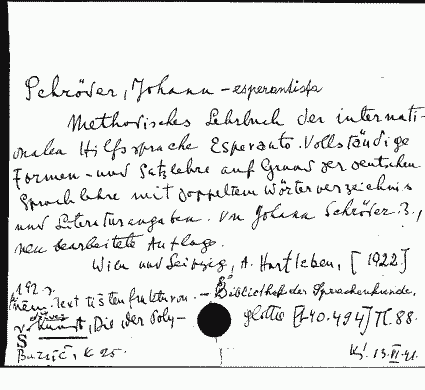 Schröder, Johann – esperantista
Methodisches Lehrbuch der internati-
onalen Hilfssprache Esperanto. Vollständige
Formen- und Satzlehre auf Grund der deutschen
Sprachlehre mit doppeltem Wörterverzeichnis
und Literaturangaben. Von Johann Schröder. 3.,
neu bearbeitete Auflage.
Wien und Leipzig, A. Hartleben, [1922]
192 s.
Něm. text – Bibliothek der Sprachenkunde.
Kunst, Die der Poly-
glottie [1-40.494] Tl. 88.
S
K 25.
15.VI.41.